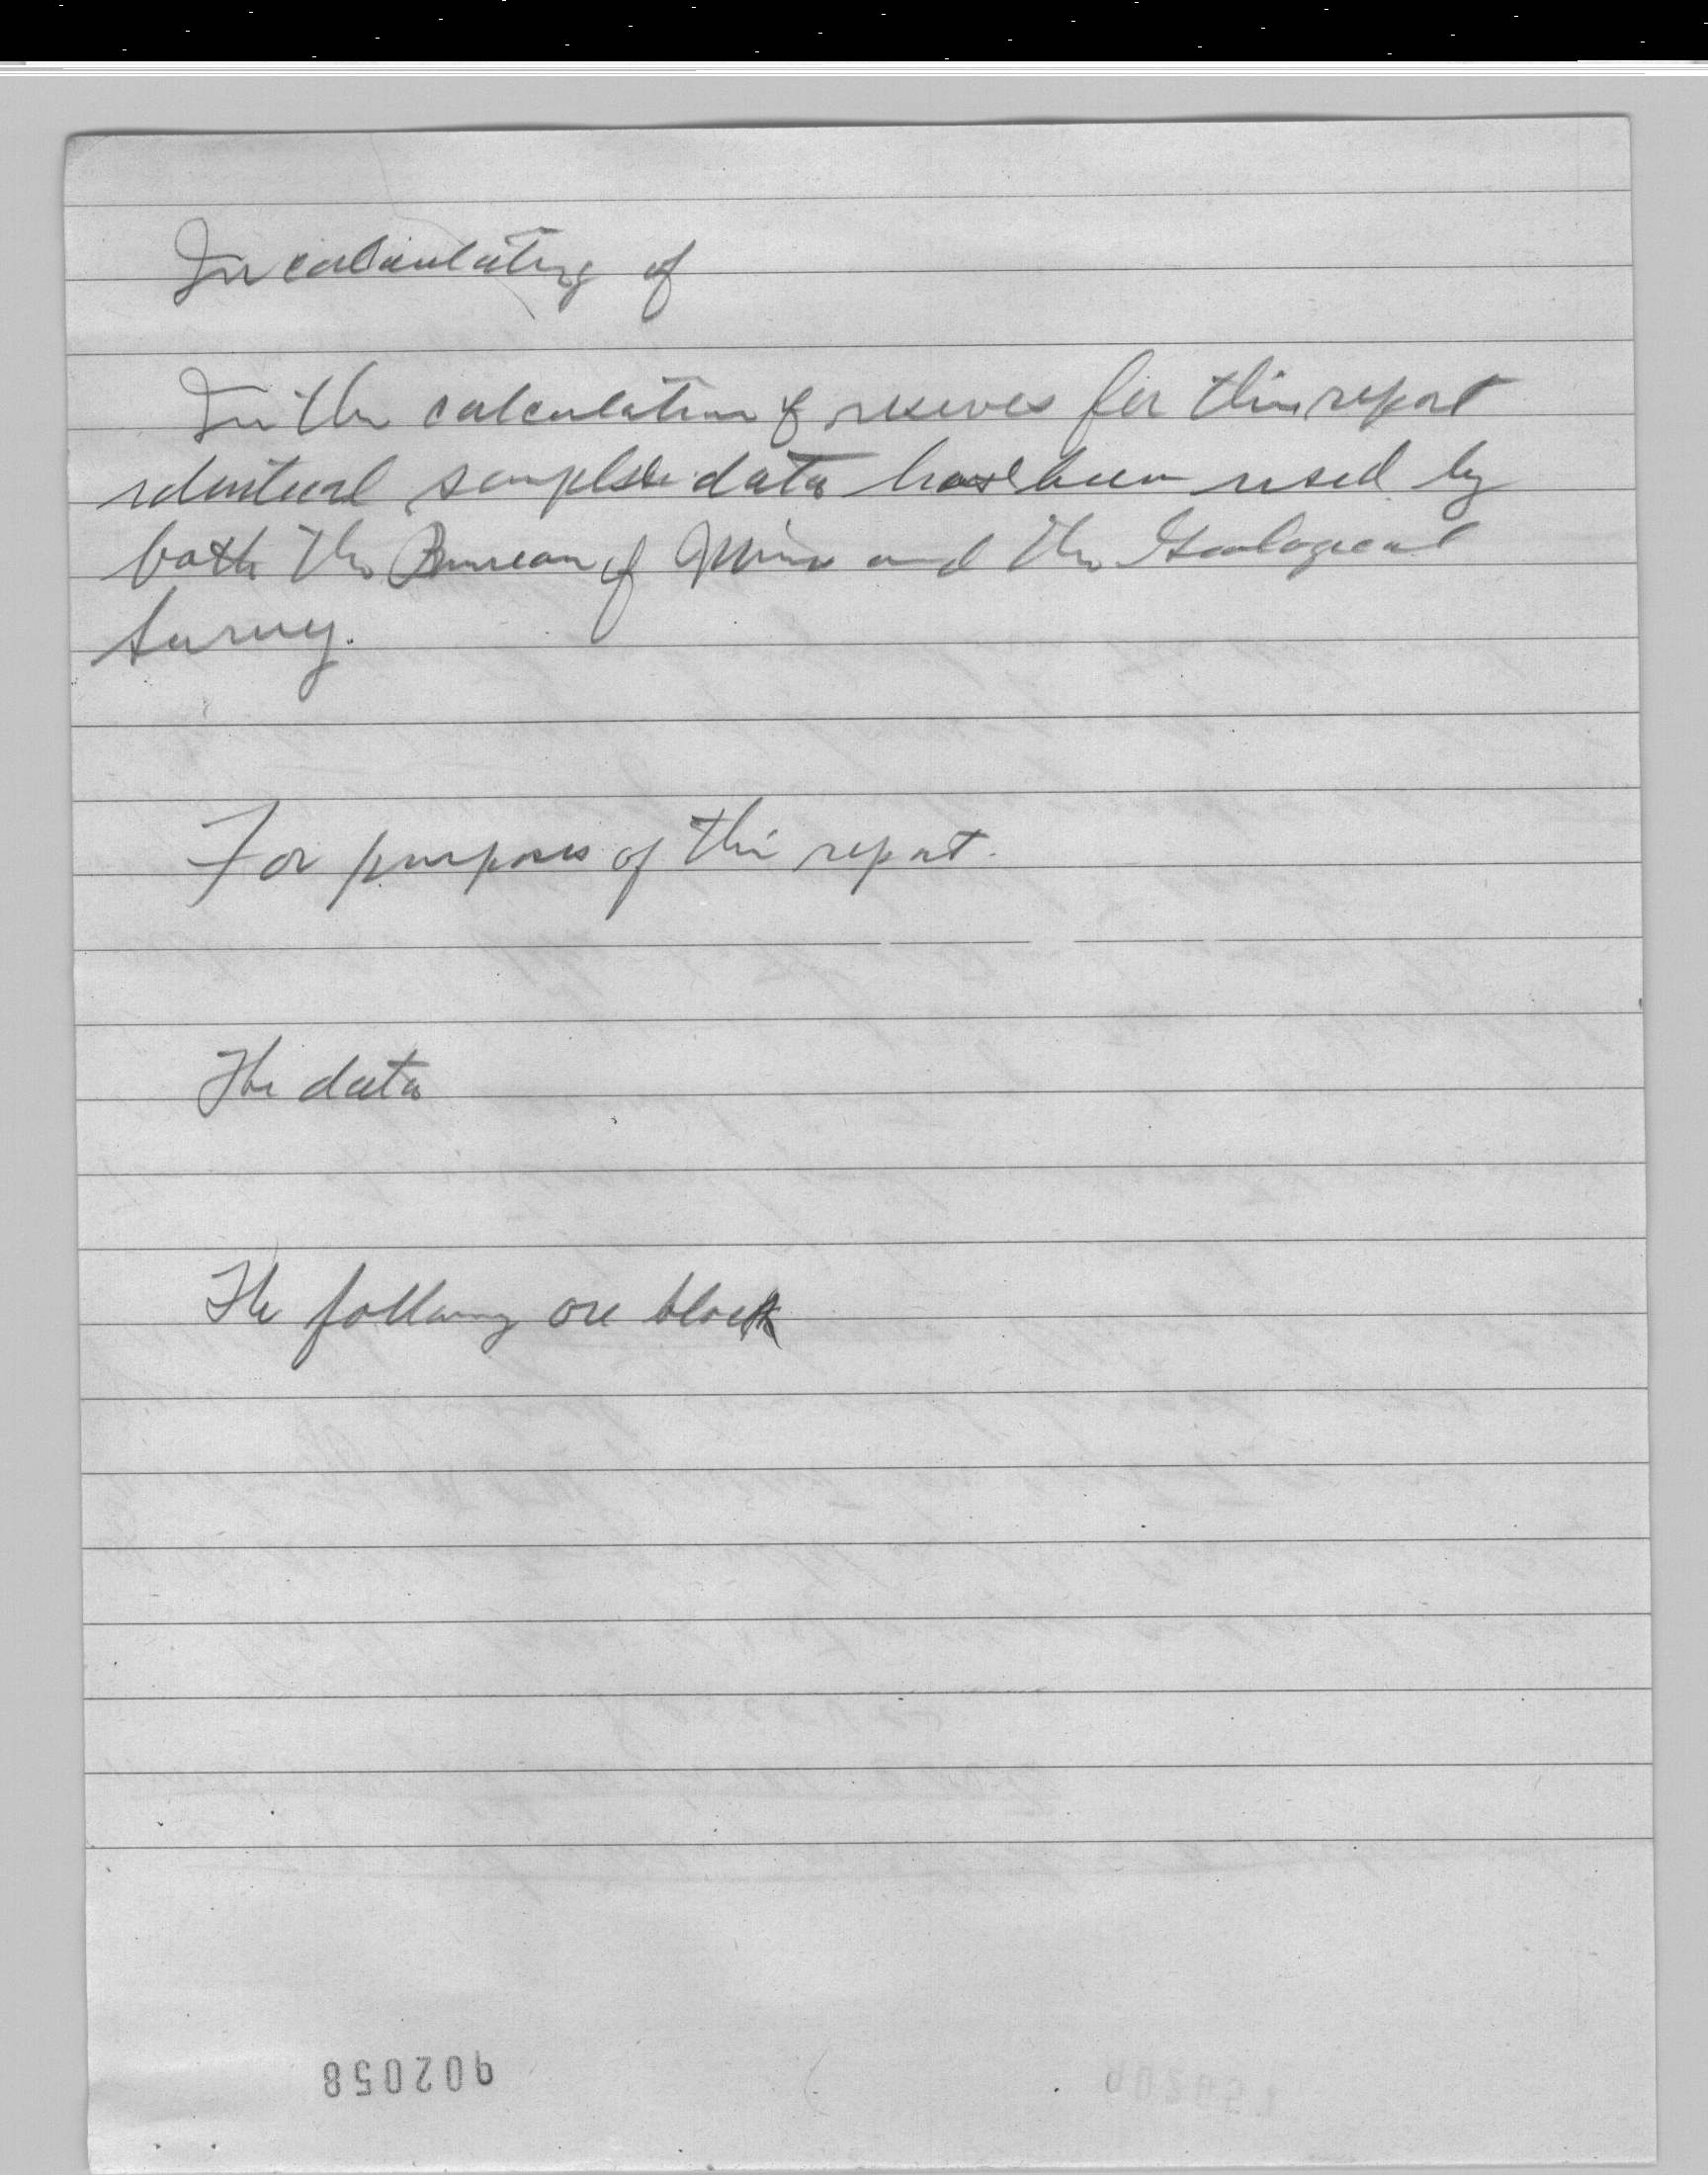 In calculating of
In the calculation of reserves for this report
identical sample data has been used by
both the Bureau of Mines and the Geological
Survey.
For purposes of this report.
The data
The following ore block
902058